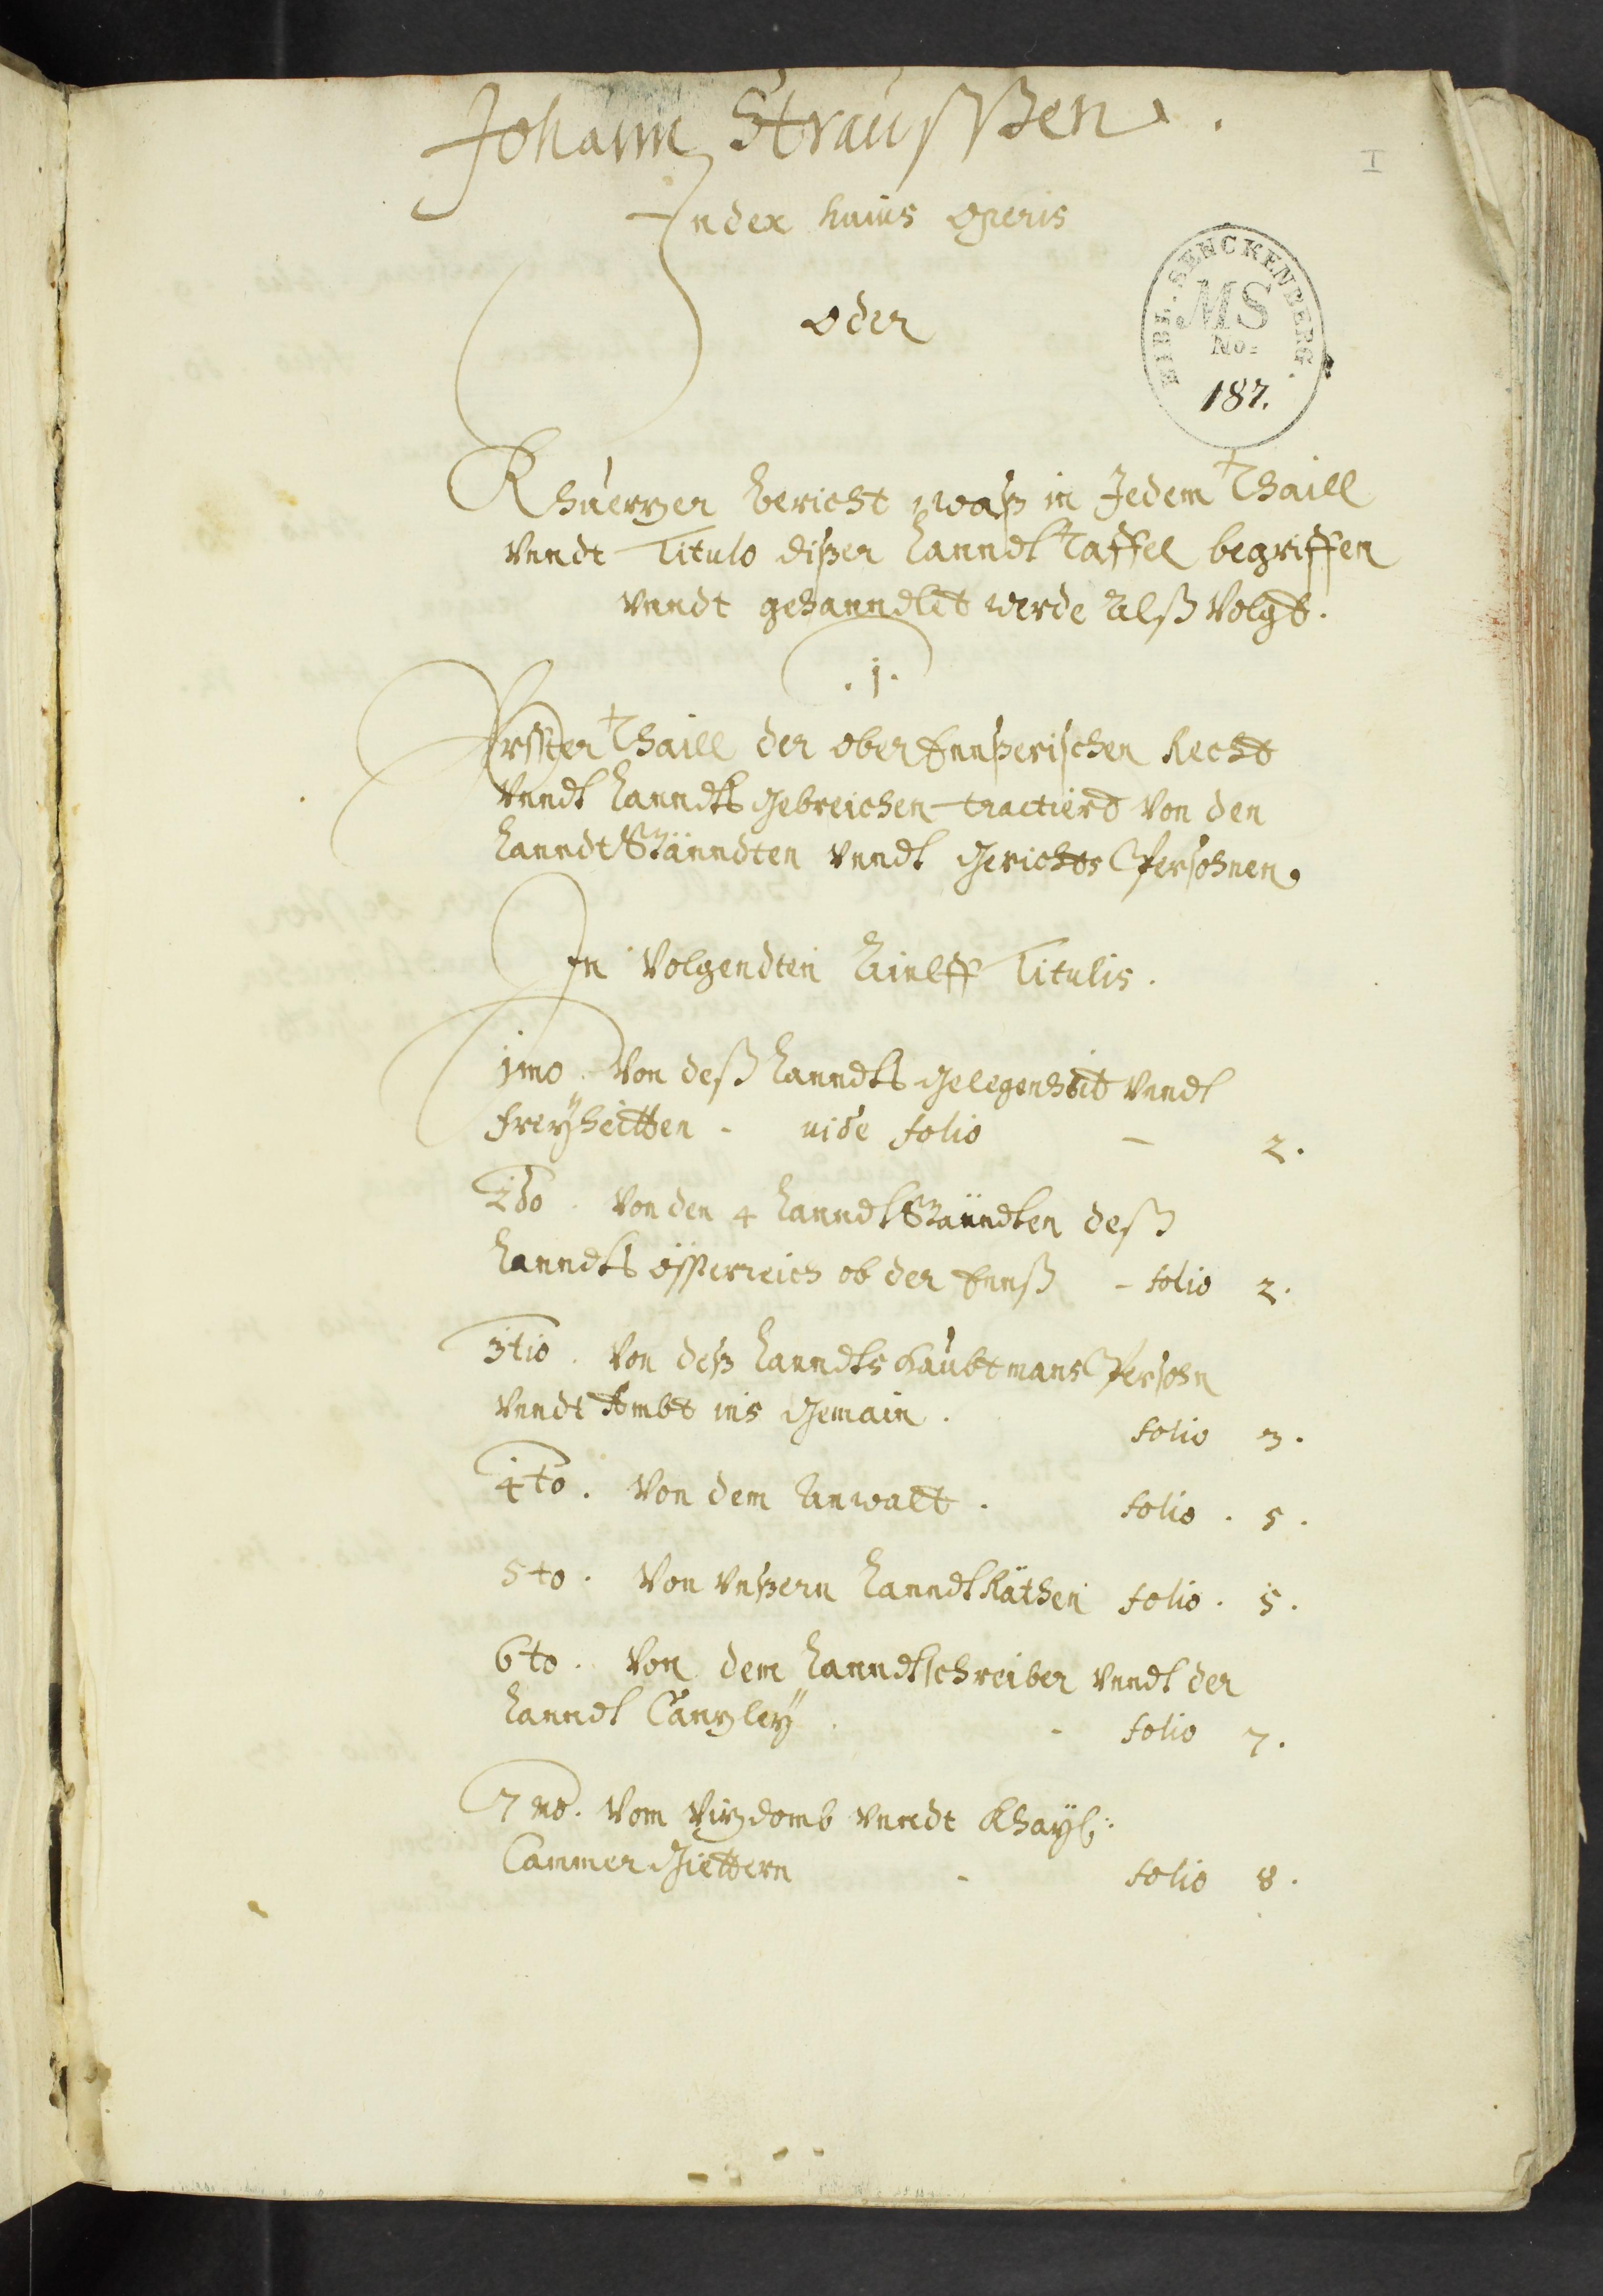 Johann Straussen.
I
Index huius operis
oder
BIBL. SENCKENBERG.
MS
No:
187.
Khuerzer bericht waß in Jedem Thaill
vnndt Titulo dißer Lanndt Taffel begriffen
vnndt gehanndlet werde Alß Volgt.
.1.
Erster Thaill der ober Ennßerischen Recht
vnndt Lanndts gebreichen tractierd Von den
Lanndt Stänndten vnndt gerichts Persohnen.
In Volgendten Ainlff Titulis.
1mo. Von deß Lanndts gelegenheit vnndt
Freyheitten - vide folio - 2.
2do. Von den 4 Lanndt Stänndten deß
Lanndts össterreich ob der Ennß - folio 2.
3tio. Von deß Lanndts Haubtmans Persohn
vnndt Ambt ins gemain. folio 3.
4to. Von dem Anwalt. folio. 5.
5to. Von vnßern Lanndt Räthen folio. 5.
6to. Von dem Lanndtschreiber vnndt der
Lanndt Canzley. - folio 7.
7mo. Vom Vizdomb vnndt Khayß:
Cammer Güettern - folio 8.